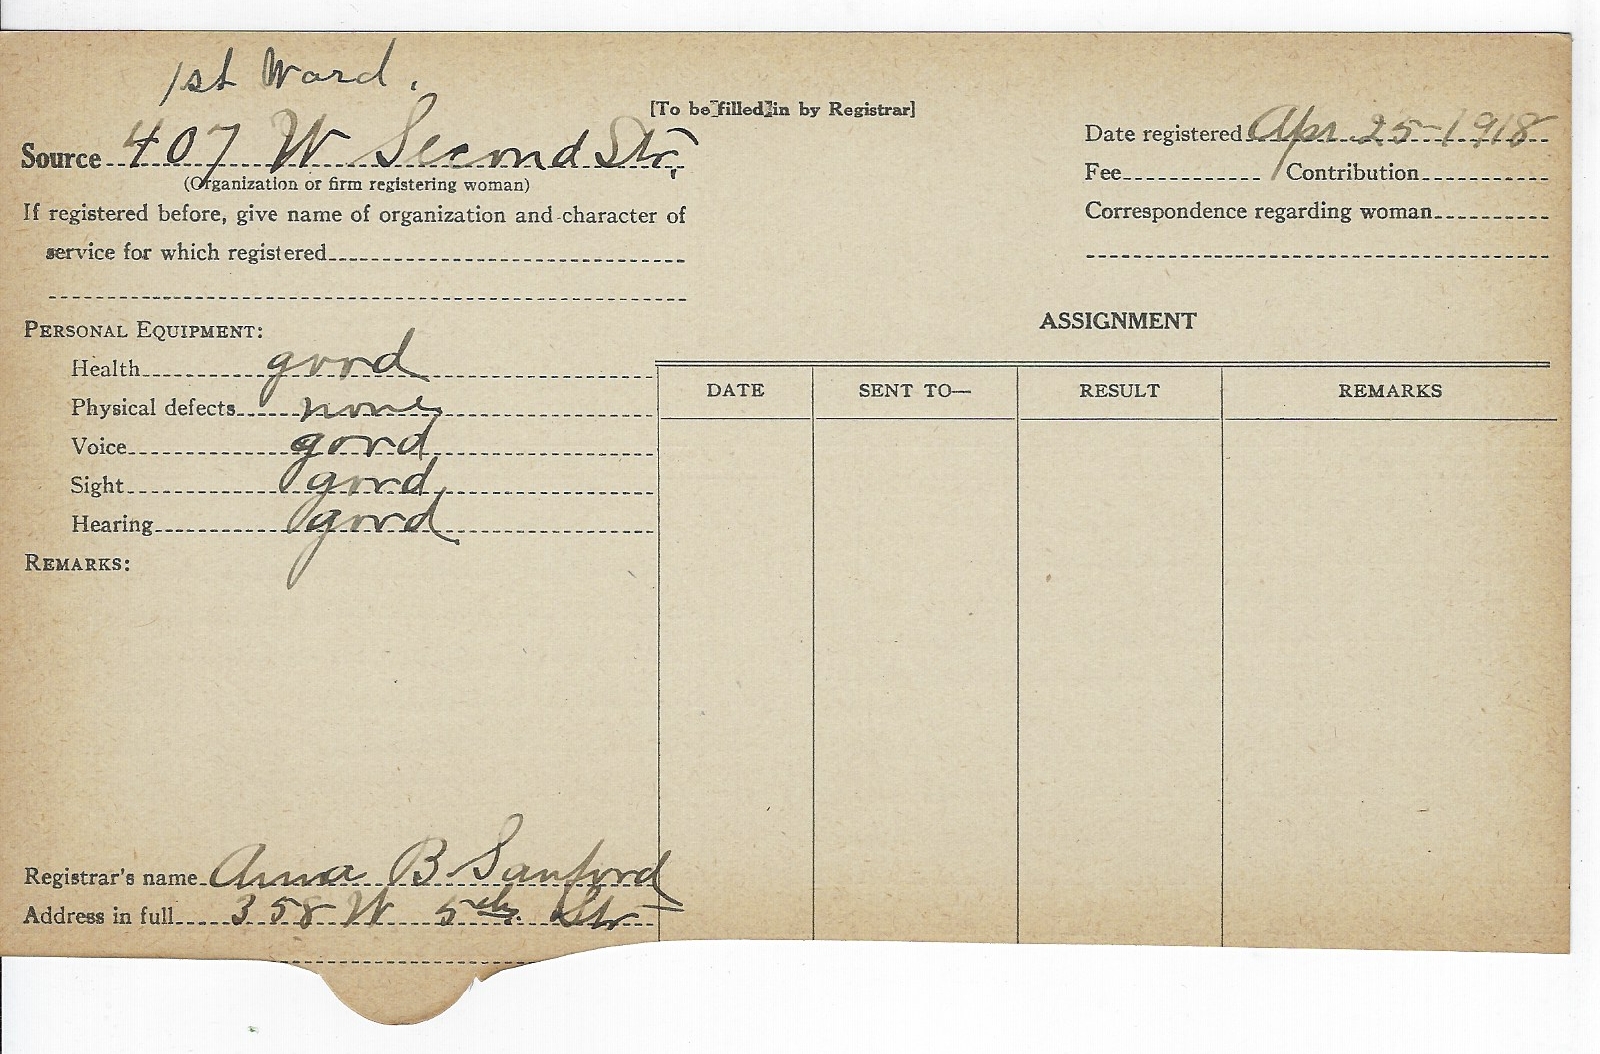 1st Ward.
[To be filled in by Registrar]
Source 407 W Second Str.
(Organization or firm registering woman)
If registered before, give name of organization and character of
service for which registered
Date registered Apr. 25-1918
Fee Contribution
Correspondence regarding woman
PERSONAL EQUIPMENT:
Health good
Physical defects none
Voice good
Sight good
Hearing good
REMARKS:
ASSIGNMENT
DATE SENT TO— RESULT REMARKS
Registrar's name Anna B Sanford
Address in full 358 W 5th Str